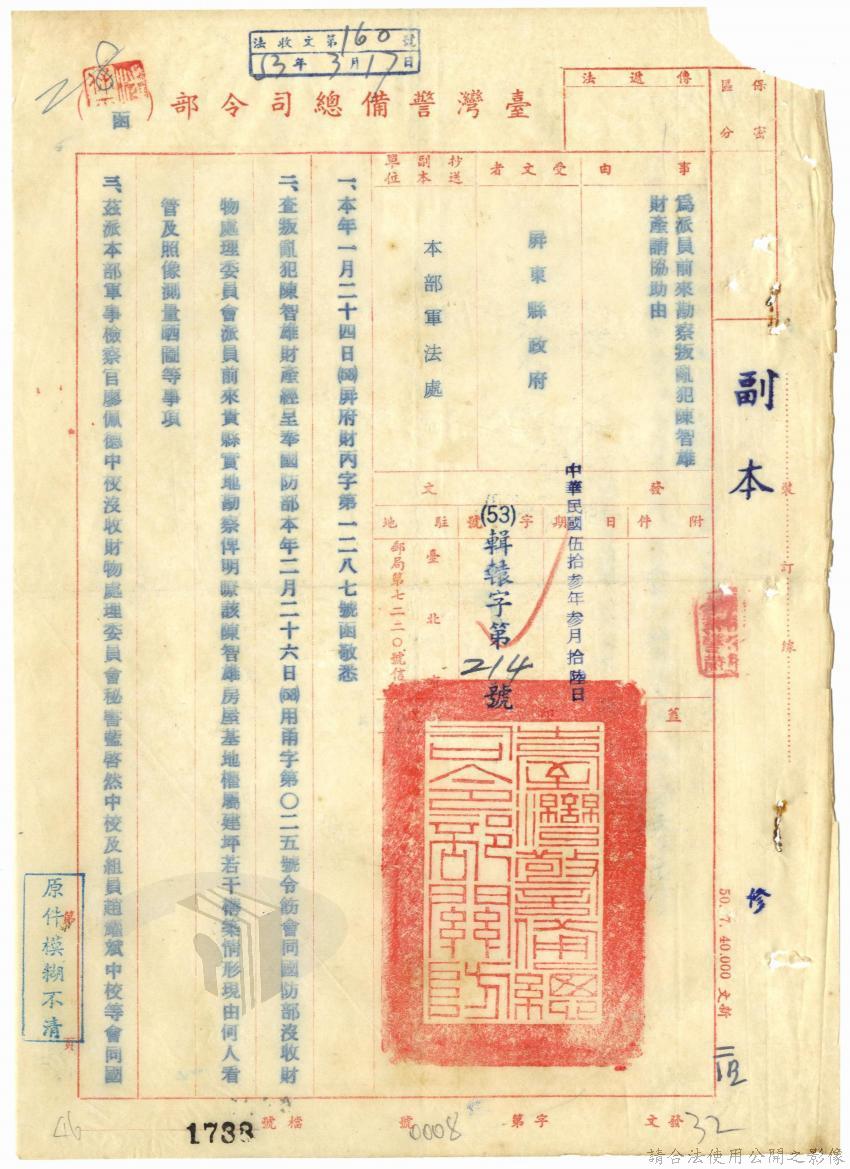 法收文第160號
53年3月17日
臺灣警備總司令部
函
傳遞法
保密
區分
事由
為派員前來勘察叛亂犯陳智雄
財產請協助由
受文者
屏東縣政府
抄送
副本
單位
本部軍法處
副本
裝訂線
發文
附件
日期
字號
駐地
中華民國伍拾叁年叁月拾陸日
(53)輯轅字第214號
臺北市
郵局第七二二〇號信
蓋印
臺灣警備總司令部關防
一、本年一月二十四日(53)屏府財丙字第一二八七號函敬悉
二、查叛亂犯陳智雄財產經呈奉國防部本年二月二十六日(53)用甫字第〇二五號令飭會同國防部沒收財
物處理委員會派員前來貴縣實地勘察俾明瞭該陳智雄房屋基地權屬建坪若干構築情形現由何人看
管及照像測量晒圖等事項
三、茲派本部軍事檢察官廖佩德中校沒收財物處理委員會秘書藍啓然中校及組員趙耀斌中校等會同國
原件模糊不清
第頁
50.7.40.000文新
發文
字第0008號
檔號
1738
32
46
請合法使用公開之影像